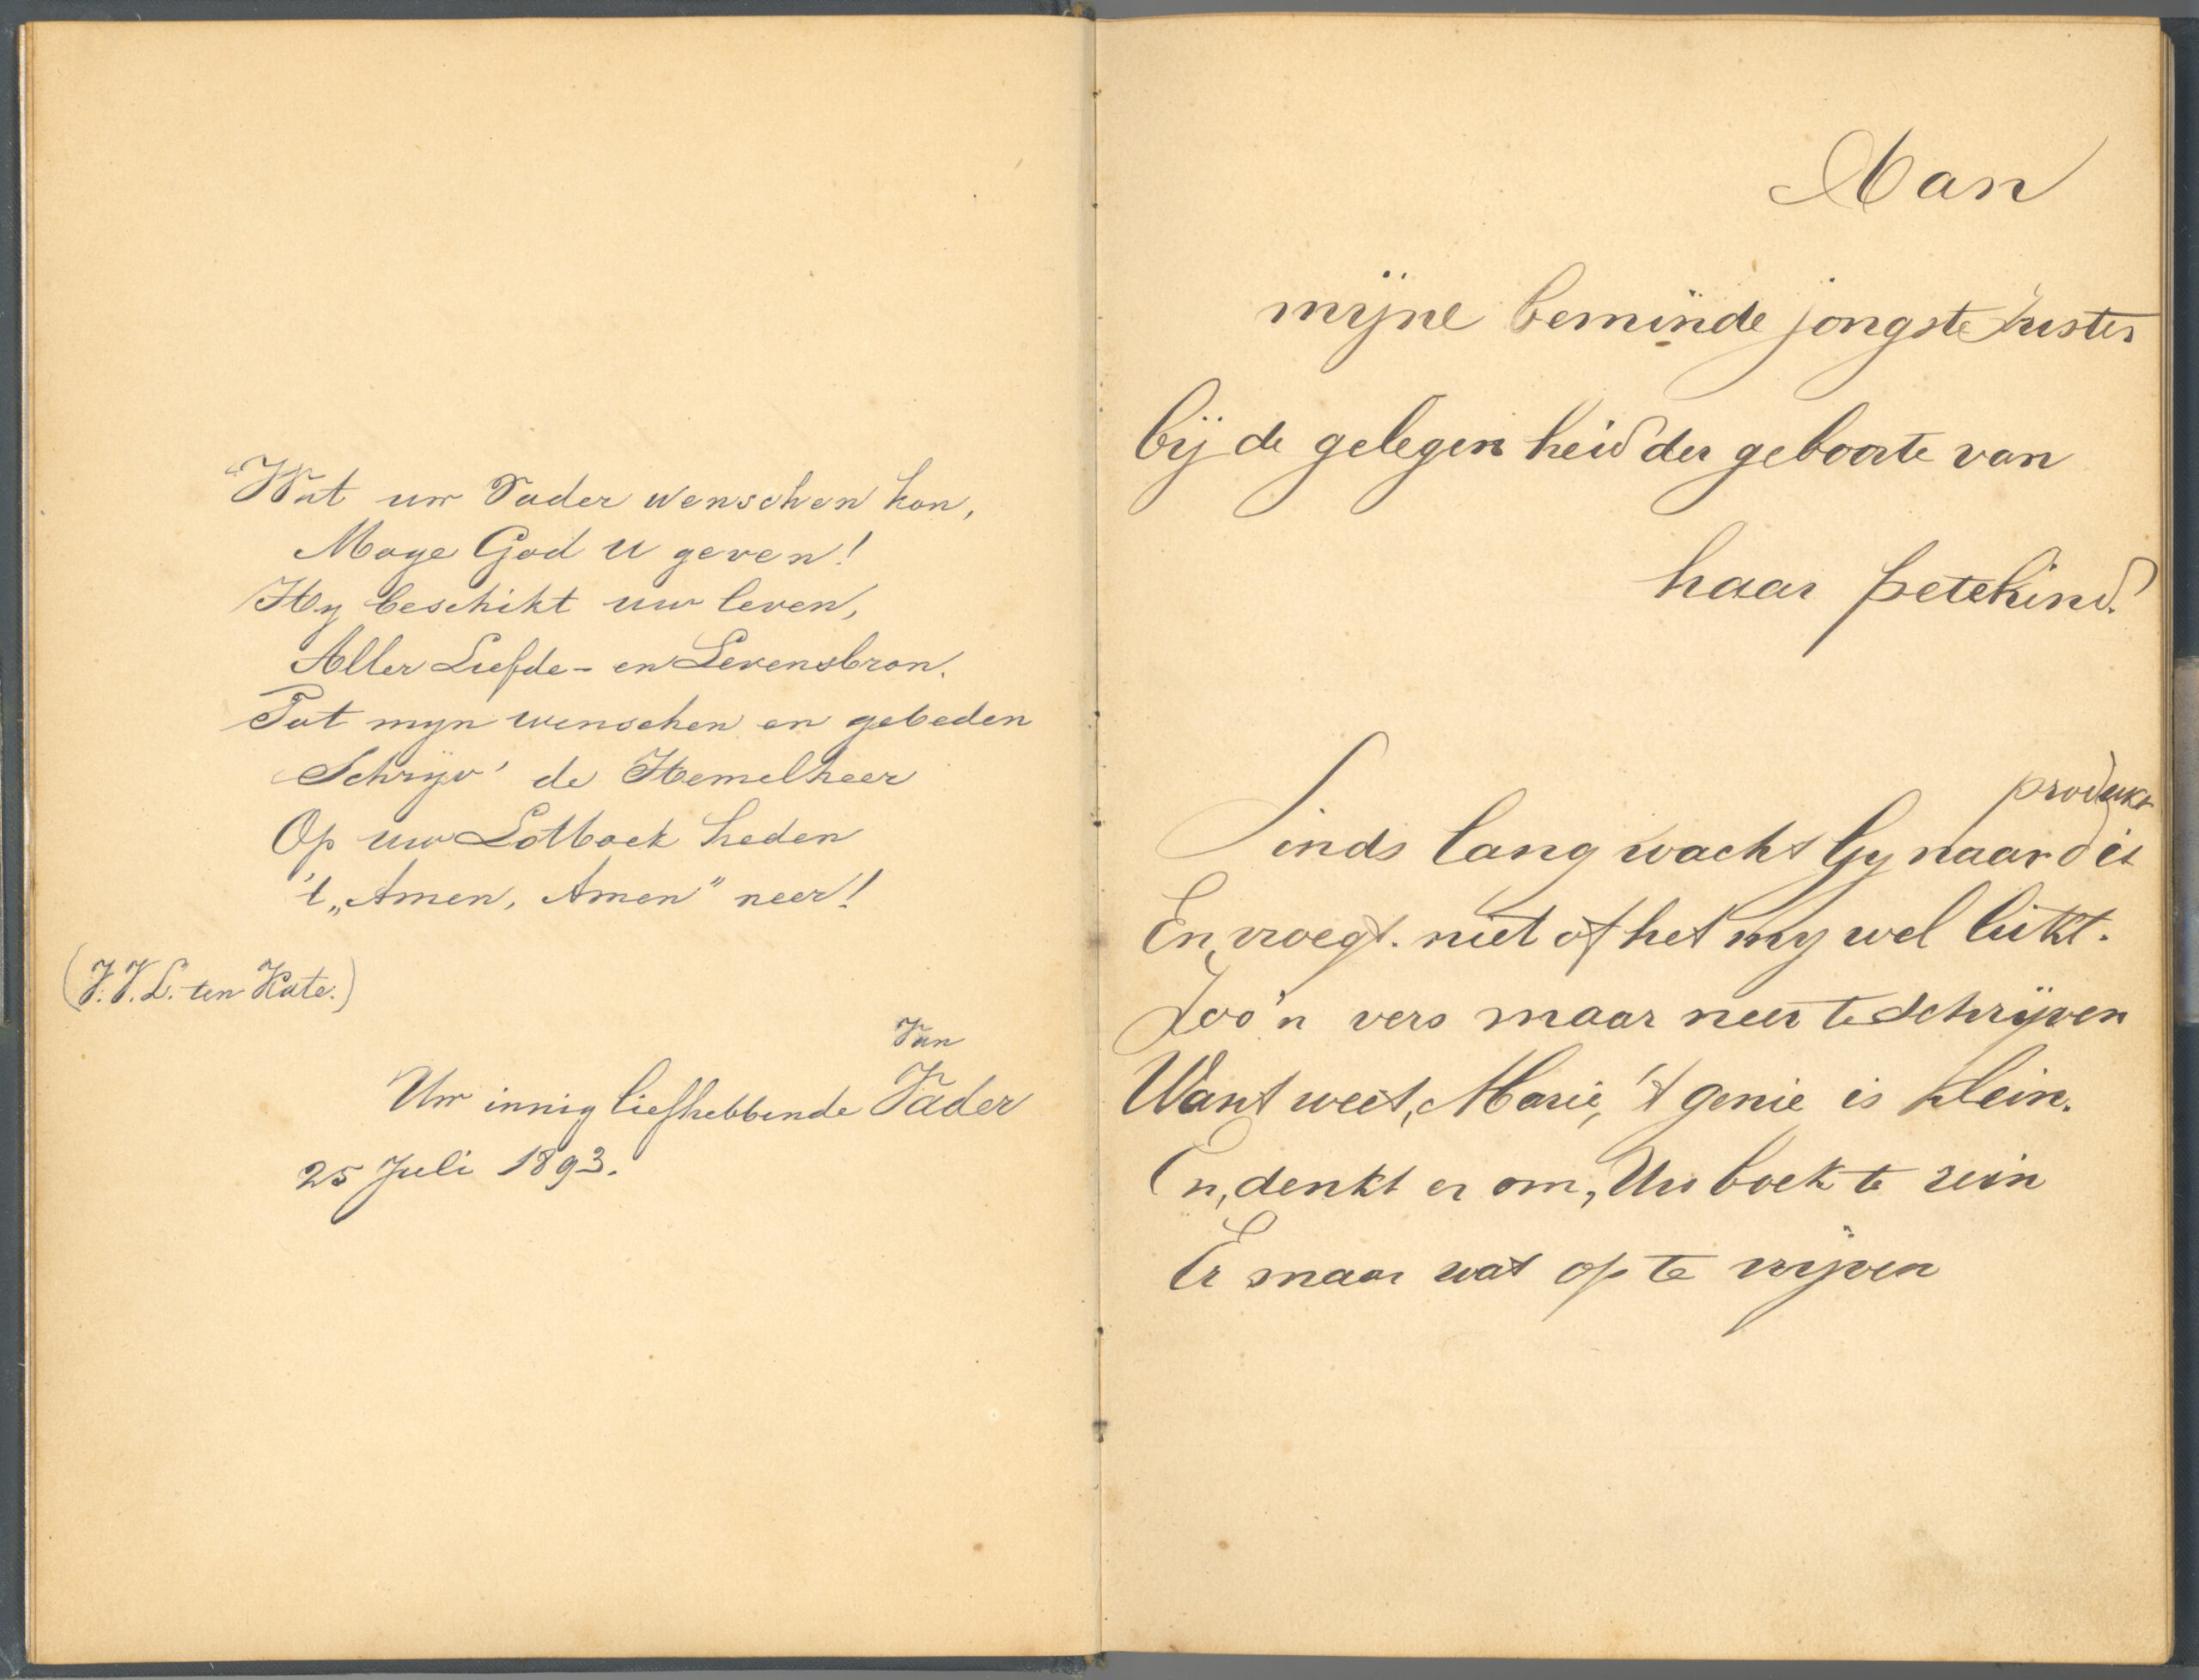 Wat uw Vader wenschen kon,
Moge God U geven!
Hy beschikt uw leven,
Aller Liefde- en Levensbron.
Tot myn wenschen en gebeden
Schrijv' de Hemelheer
Op uw Lotboek heden
't „Amen, Amen" neer!
(J.J.L. ten Kate.)
Van
Uw innig liefhebbende Vader
25 Juli 1893.
Aan
mijne beminde jongste Zuster
bij de gelegenheid der geboorte van
haar petekind.
Sinds lang wacht Gy naar dit
produkt
En vroegt niet of het my wel lukt.
Zoo'n vers maar neer te schrijven
Want weet, Marie, 't genie is klein.
En, denkt er om, Uw boek te rein
Er maar wat op te wrijven